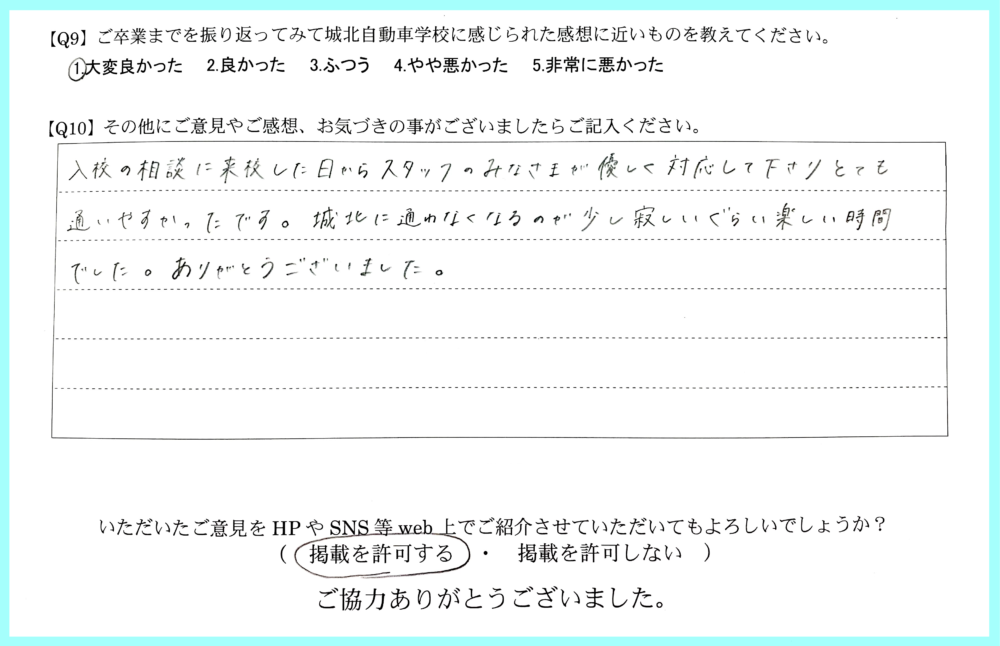 【Q9】ご卒業までを振り返ってみて城北自動車学校に感じられた感想に近いものを教えてください。
1.大変良かった 2.良かった 3.ふつう 4.やや悪かった 5.非常に悪かった
【Q10】その他にご意見やご感想、お気づきの事がございましたらご記入ください。
入校の相談に来校した日からスタッフのみなさまが優しく対応して下さりとても
通いやすかったです。城北に通わなくなるのが少し寂しいぐらい楽しい時間
でした。ありがとうございました。
いただいたご意見をHPやSNS等web上でご紹介させていただいてもよろしいでしょうか？
（ 掲載を許可する ・ 掲載を許可しない ）
ご協力ありがとうございました。